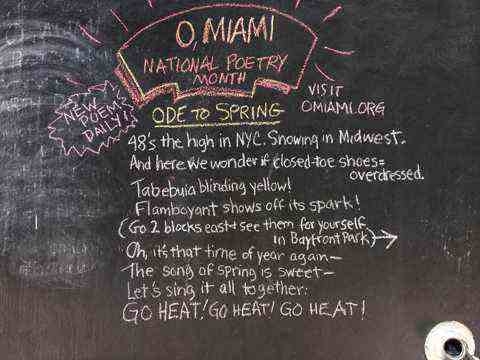 O, MIAMI
NATIONAL POETRY
MONTH
NEW
POEM
DAILY!
VISIT
OMIAMI.ORG
ODE TO SPRING
48's the high in NYC. Snowing in Midwest.
And here we wonder if closed-toe shoes=
overdressed.
Tabebuia blinding yellow!
Flamboyant shows off its spark!
(Go 2 blocks east + see them for yourself
in Bayfront Park) →
Oh, it's that time of year again—
The song of spring is sweet—
Let's sing it all together:
GO HEAT! GO HEAT! GO HEAT!